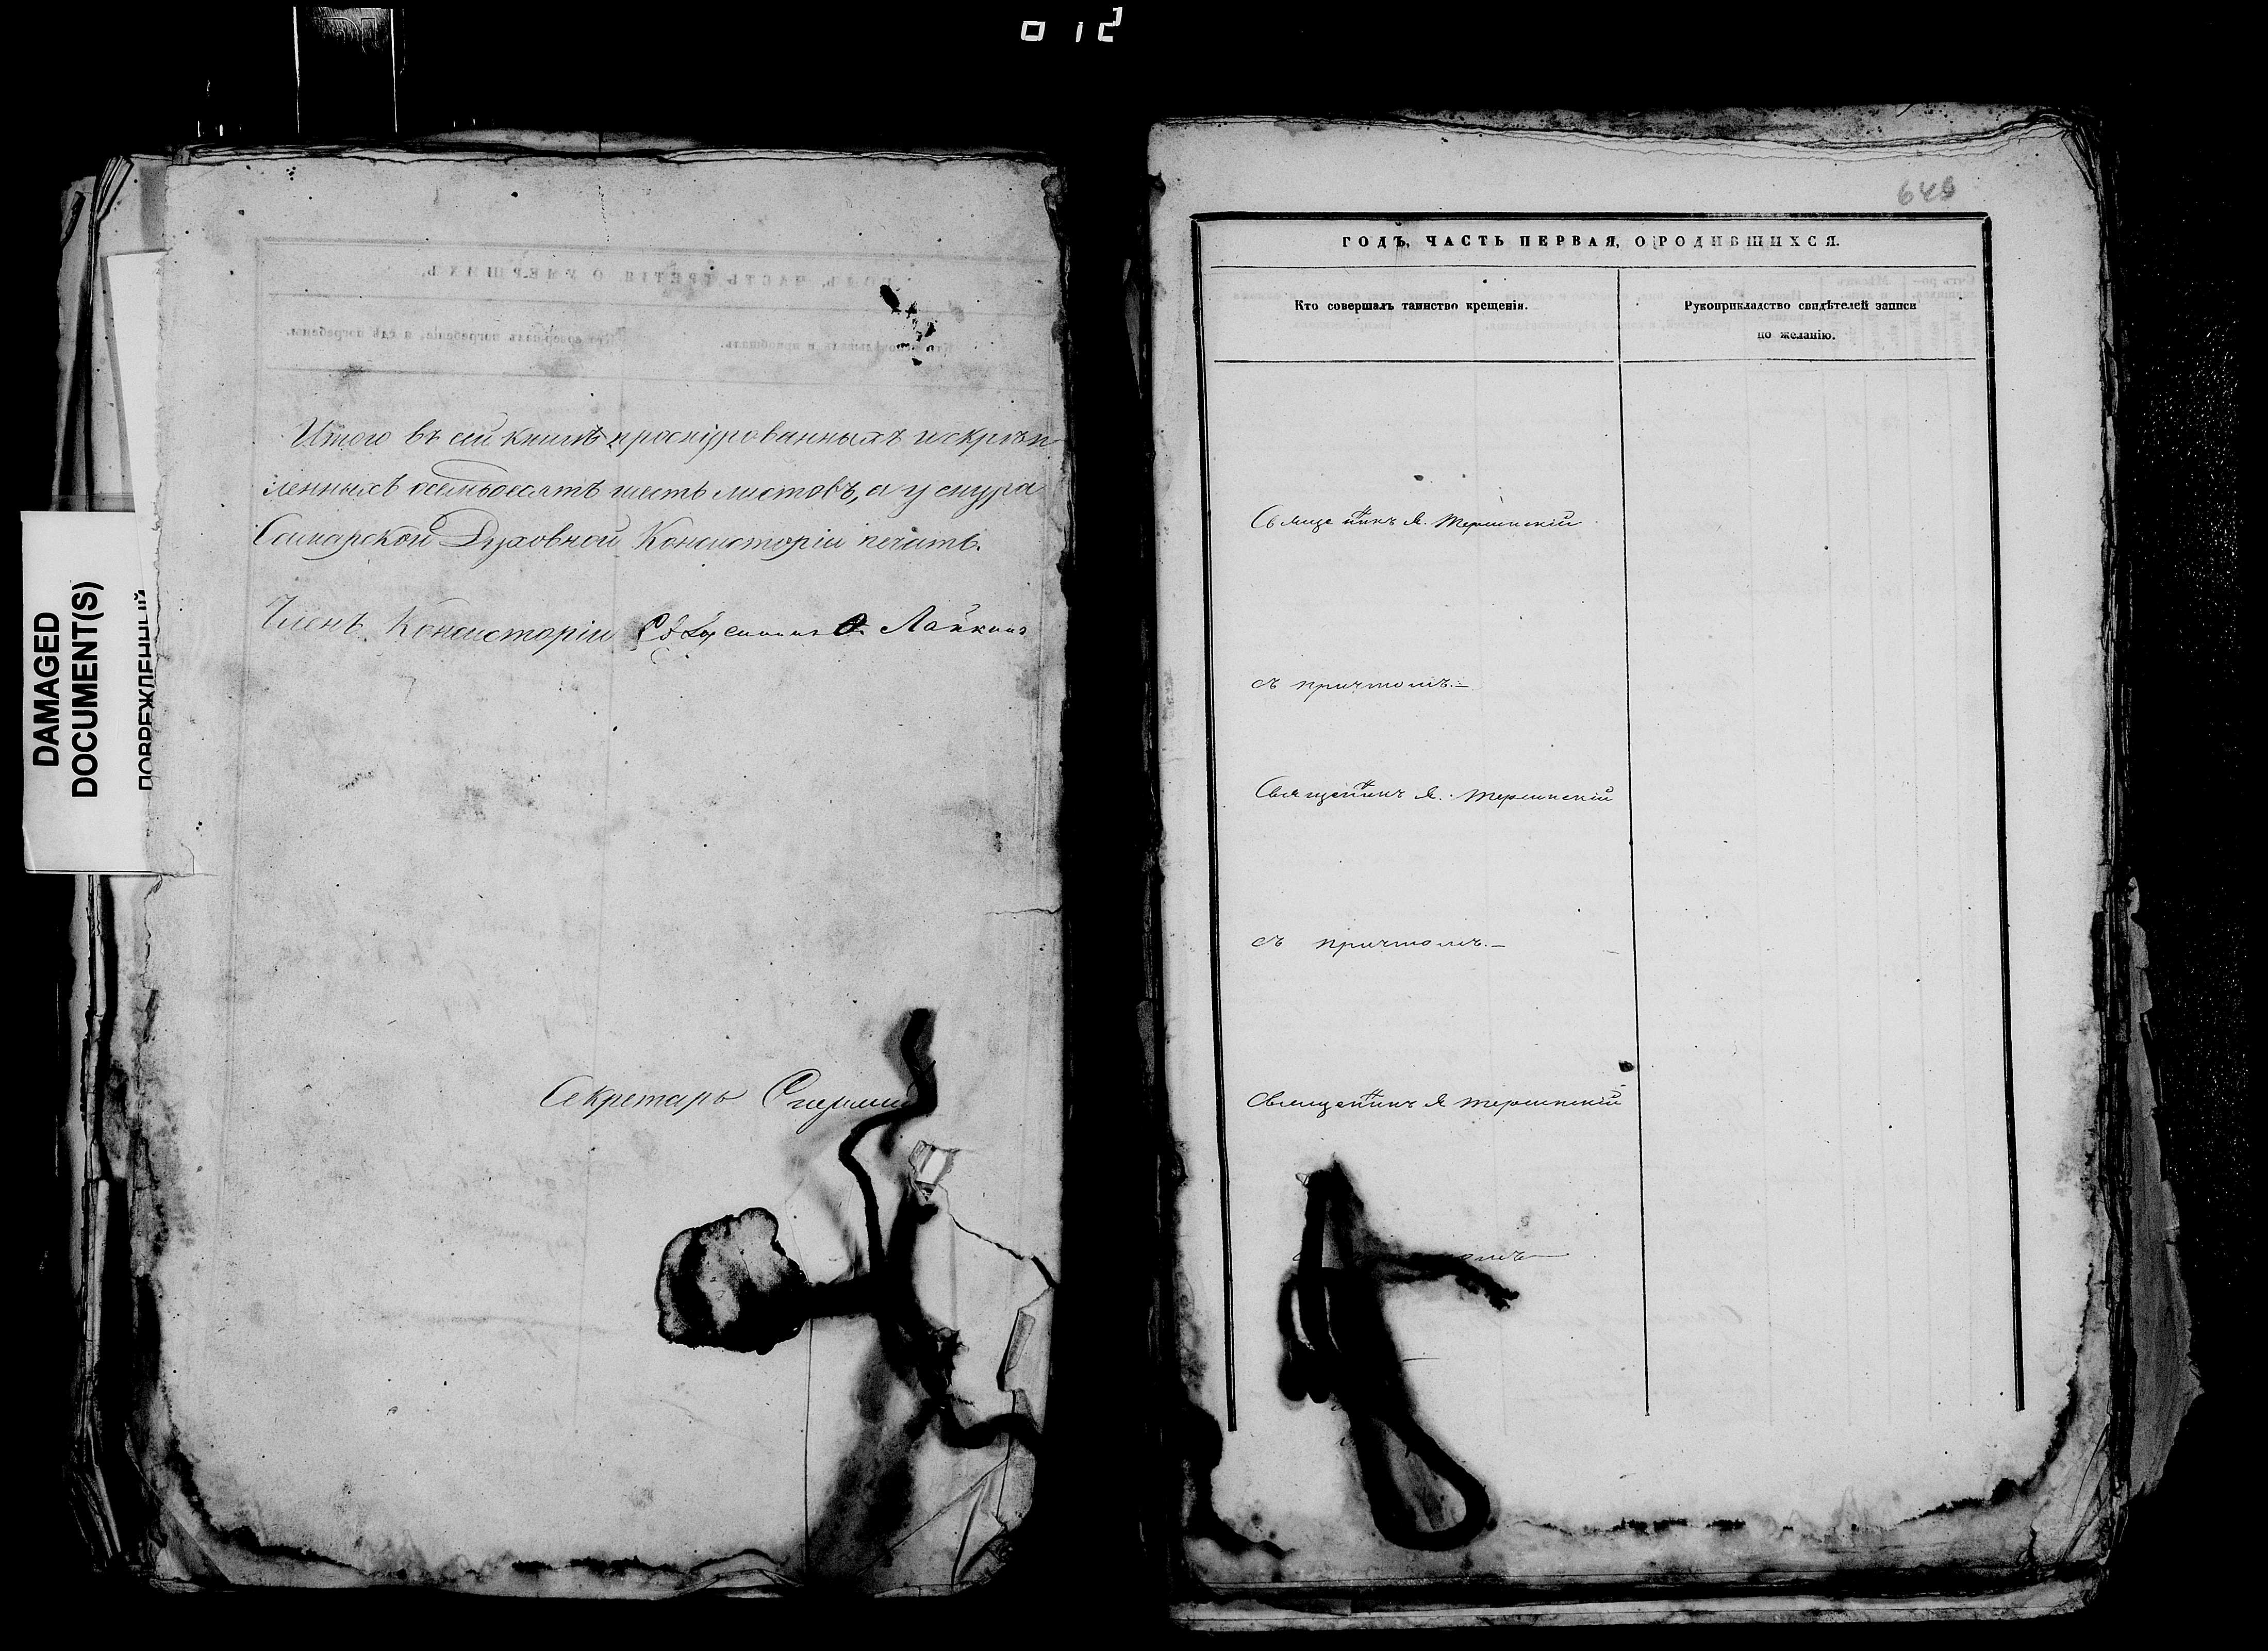 012
DAMAGED
DOCUMENT(S)
ПОВРЕЖДЕННЫЙ
Итого въ сей книгѣ прошнурованныхъ и скрѣп
ленныхъ восемьдесятъ шесть листовъ, а у снура
Самарской Духовной Консисторіи печать.
Членъ Консисторіи
Секретарь
ГОДЪ, ЧАСТЬ ПЕРВАЯ, О РОДИВШИХСЯ.
Кто совершалъ таинство крещенія.
Рукоприкладство свидѣтелей записи
по желанію.
Священникъ Я. Терсинскій
съ причтомъ.—
Священникъ Я. Терсинскій
съ причтомъ.—
Священникъ Я Терсинскій
омъ—